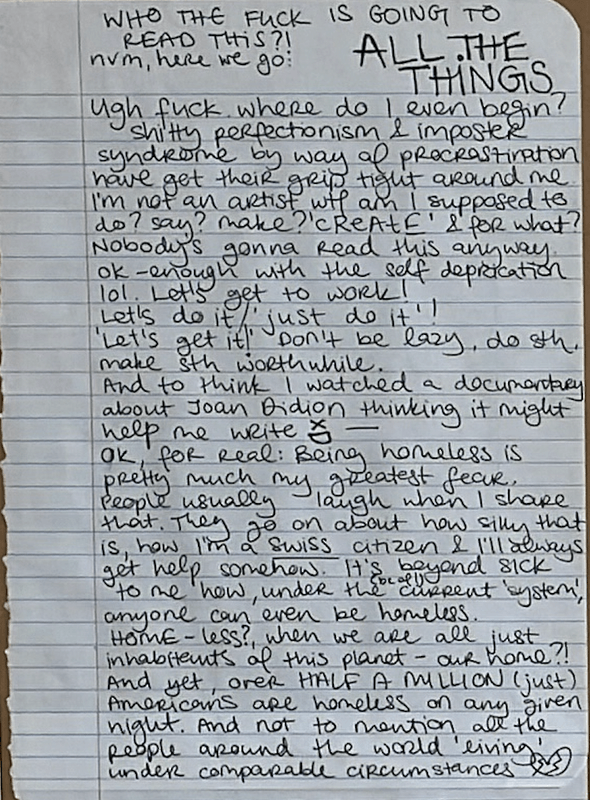 WHO THE FUCK IS GOING TO
READ THIS?!
nvm, here we go:
ALL THE
THINGS
Ugh fuck where do I even begin?
Shitty perfectionism & imposter
syndrome by way of procrastination
have get their grip tight around me
I'm not an artist wtf am I supposed to
do? say? make? 'CREATE' & for what?
Nobody's gonna read this anyway.
ok - enough with the self deprication
lol. Let's get to work!
Let's do it / 'just do it'!
'Let's get it!' Don't be lazy, do sth,
make sth worthwhile.
And to think I watched a documentary
about Joan Didion thinking it might
help me write —
OK, for real: Being homeless is
pretty much my greatest fear.
People usually laugh when I share
that. They go on about how silly that
is, how I'm a swiss citizen & I'll always
get help somehow. It's beyond sick
to me how, under the (br all) current 'system',
anyone can even be homeless.
HOME-less?, when we are all just
inhabitents of this planet - our home?!
And yet, over HALF A MILLION (just)
Americans are homeless on any given
night. And not to mention all the
people around the world 'living'
under comparable circumstances